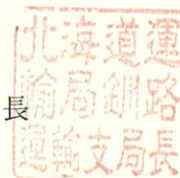 北海道運
輸局釧路
運輸支局長
長